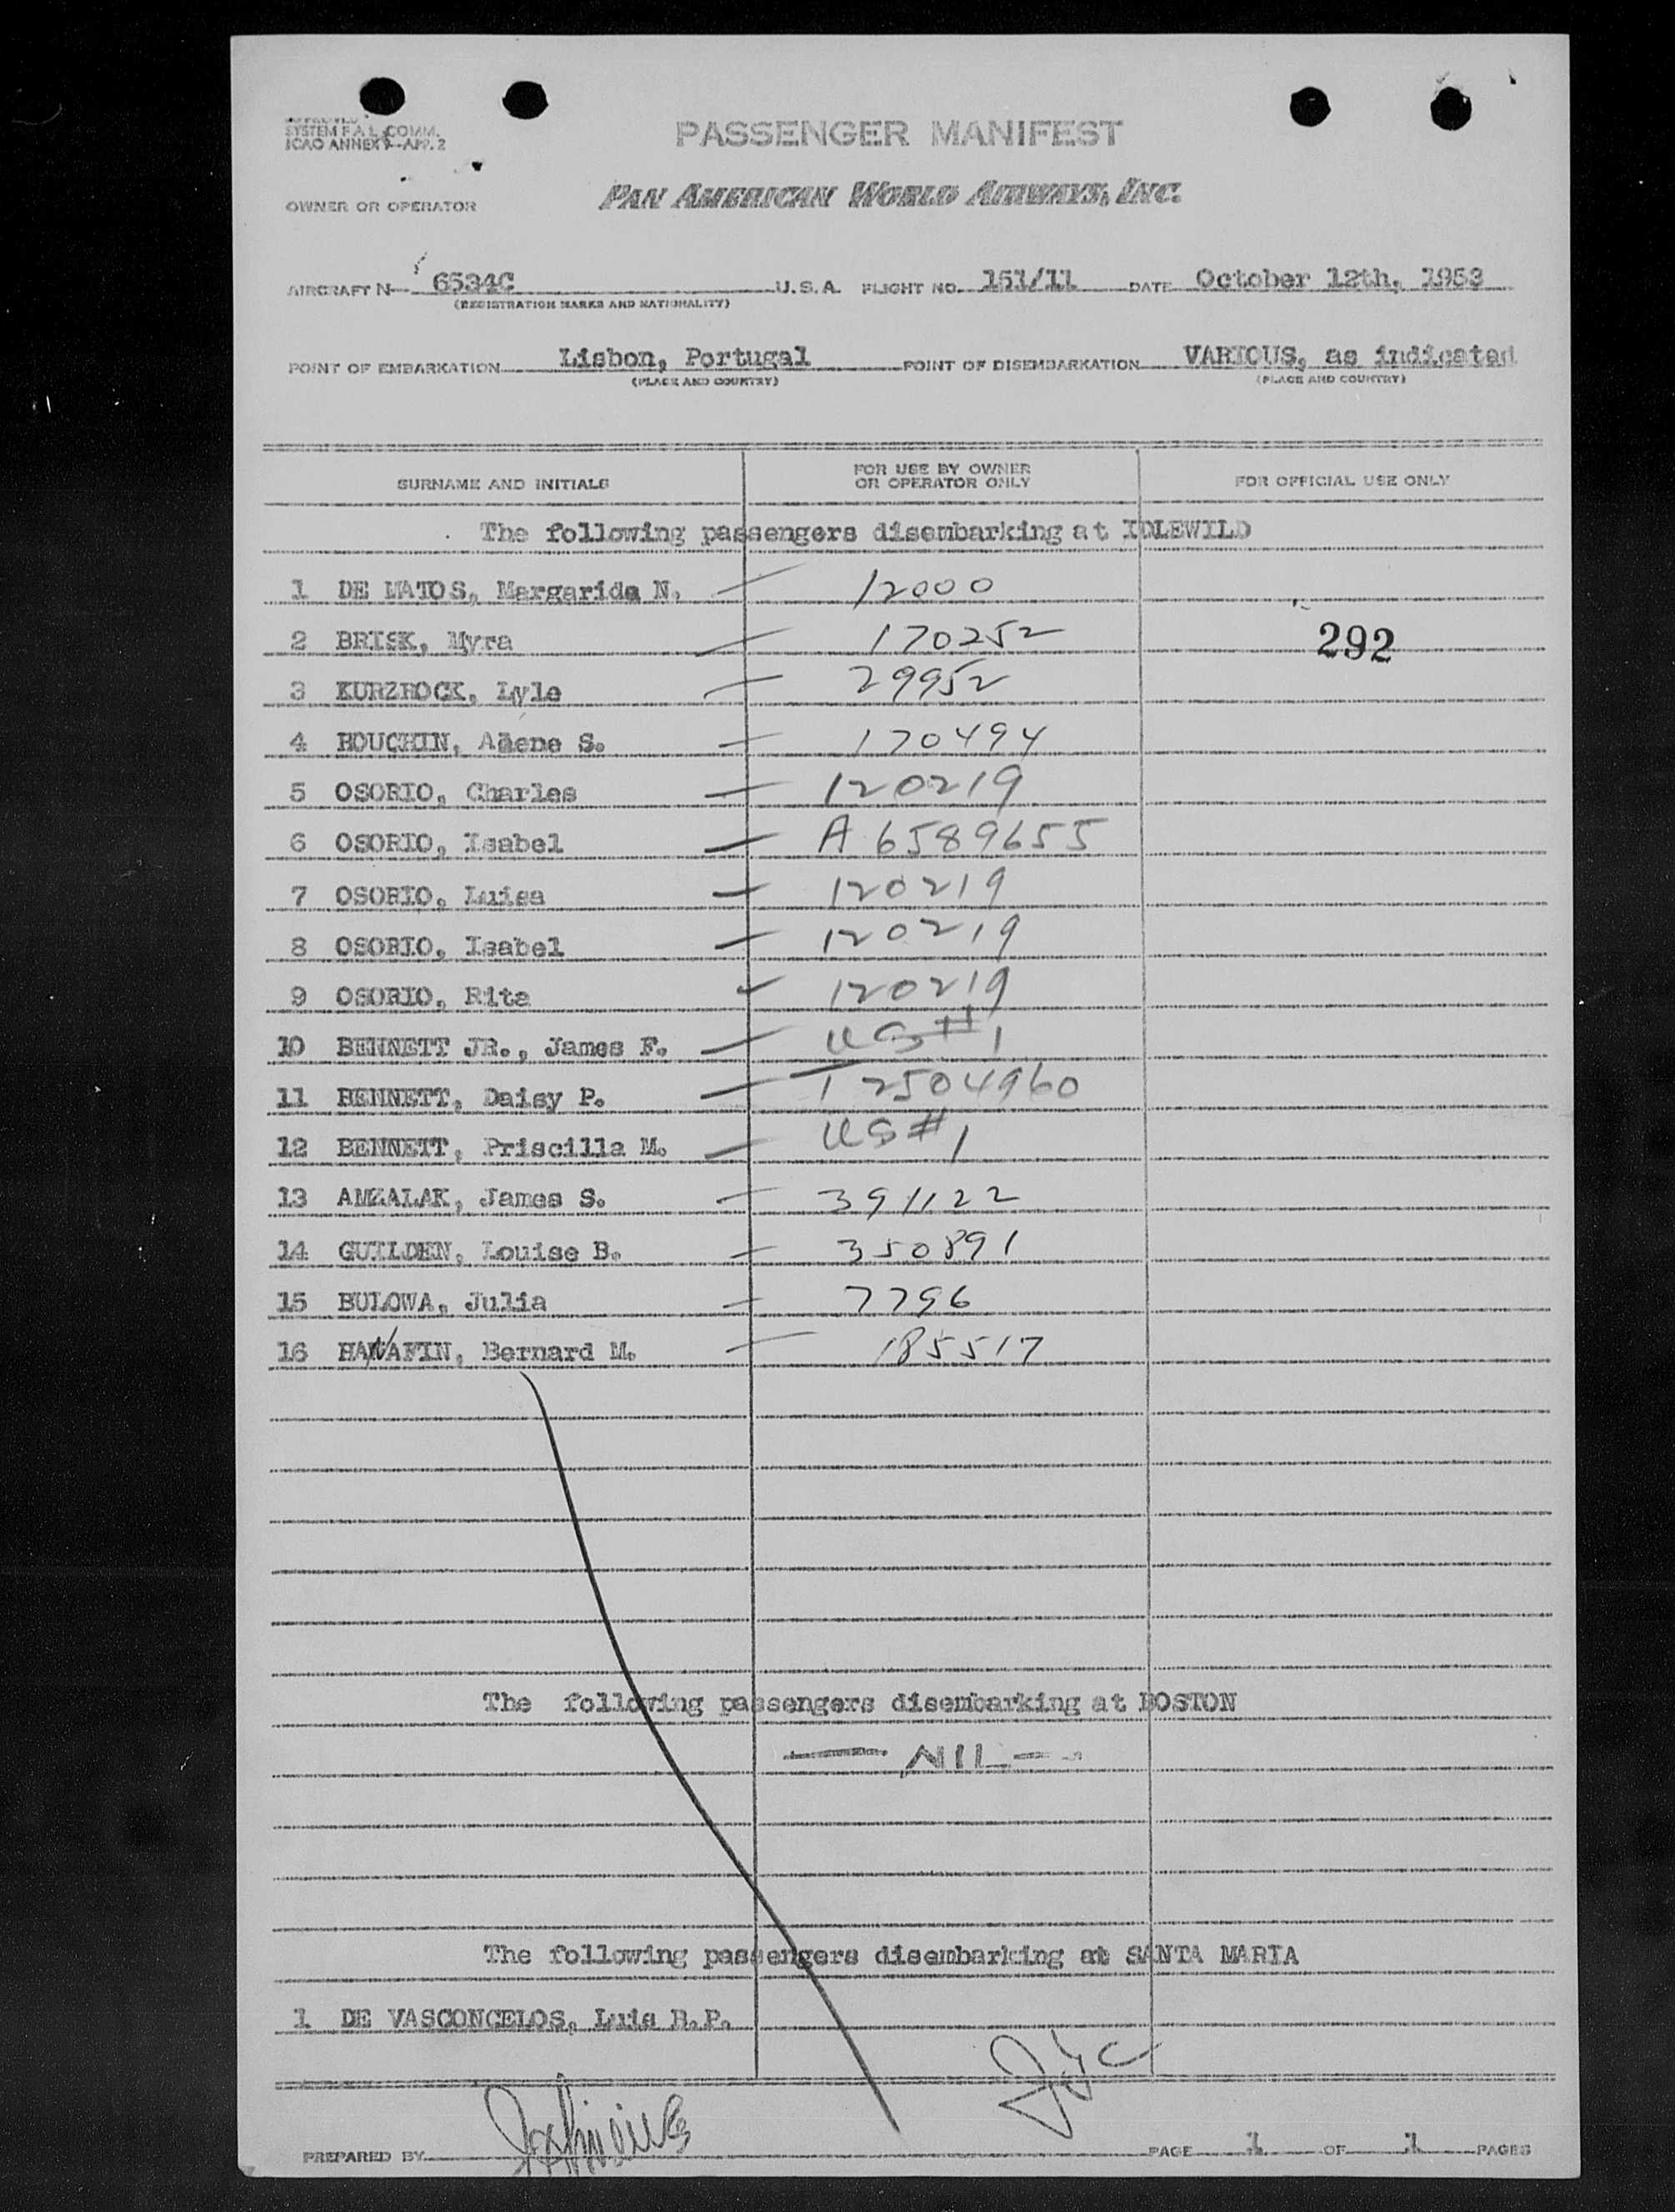 SYSTEM F.A.L. COMM.
ICAO ANNEX 9-APP. 2
PASSENGER MANIFEST
OWNER OR OPERATOR PAN AMERICAN WORLD AIRWAYS, INC.
AIRCRAFT N 6534C U.S.A. FLIGHT NO. 151/11 DATE October 12th, 1953
(REGISTRATION MARKS AND NATIONALITY)
POINT OF EMBARKATION Lisbon, Portugal POINT OF DISEMBARKATION VARIOUS, as indicated
(PLACE AND COUNTRY) (PLACE AND COUNTRY)
SURNAME AND INITIALS FOR USE BY OWNER OR OPERATOR ONLY FOR OFFICIAL USE ONLY
The following passengers disembarking at IDLEWILD
1 DE MATOS, Margarida N. 12000
2 BRISK, Myra 170252 292
3 KURZROCK, Lyle 29952
4 HOUCHIN, S. 170494
5 OSORIO, Charles 120219
6 OSORIO, Isabel A 6589655
7 OSORIO, Luisa 120219
8 OSORIO, Isabel 120219
9 OSORIO, Rita 120219
10 BENNETT JR., James F. US#1
11 BENNETT, Daisy P. T 2504960
12 BENNETT, Priscilla M. US#1
13 AMZALAK, James S. 391122
14 GUILDEN, Louise B. 350891
15 BULOWA, Julia 7796
16 HANAFIN, Bernard M. 185517
The following passengers disembarking at BOSTON
— NIL —
The following passengers disembarking at SANTA MARIA
1 DE VASCONCELOS, Luis R.P.
PREPARED BY PAGE 1 OF 1 PAGES